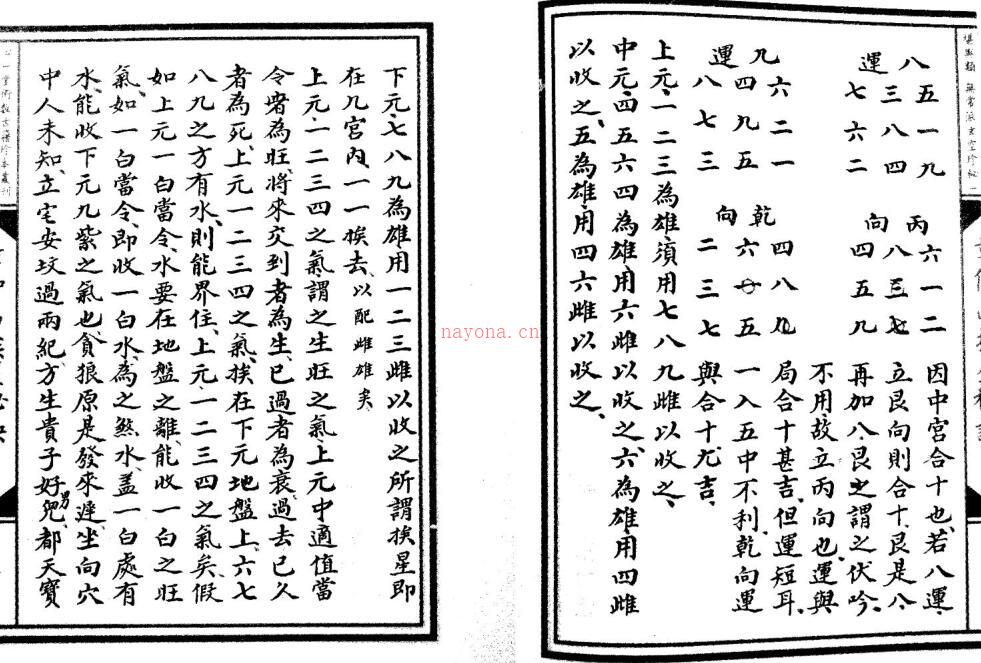 堪輿類 無常派玄空珍秘
八運 丙向
五一九 六一二 因中宮合十也、若八運、
三八四 八三七 立艮向則合十、艮是八、
七六二 四五九 再加八、艮之謂之伏吟、
不用、故立丙向也、運與
九運 乾向
六二一 四八九 局合十甚吉、但運短耳、
四九五 六 五 一入五中不利、乾向運
八七三 二三七 與合十尤吉、
上元、一二三為雄、須用七八九雌以收之、
中元、四五六四為雄、用六雌以收之、六為雄、用四雌
以收之、五為雄、用四六雌以收之、
下元、七八九為雄用一二三雌以收之所謂挨星即
在九宮內、一一挨去、以配雌雄矣、
上元、一二三四之氣謂之生旺之氣上元中適值當
令者為旺、將來交到者為生、已過者為衰、過去已久
者為死、上元一二三四之氣、挨在下元地盤上、六七
八九之方有水、則能界住、上元、一二三四之氣矣、假
如上元一白當令、水要在地盤之離、能收一白之旺
氣、如一白當令、即收一白水、為之煞水、盖一白處有
水、能收下元九紫之氣也、貪狼原是發來遲、坐向穴
中人未知、立宅安坟過兩紀、方生貴子好男兒、都天寶
心一堂術數古籍珍本叢刊
nayona.cn